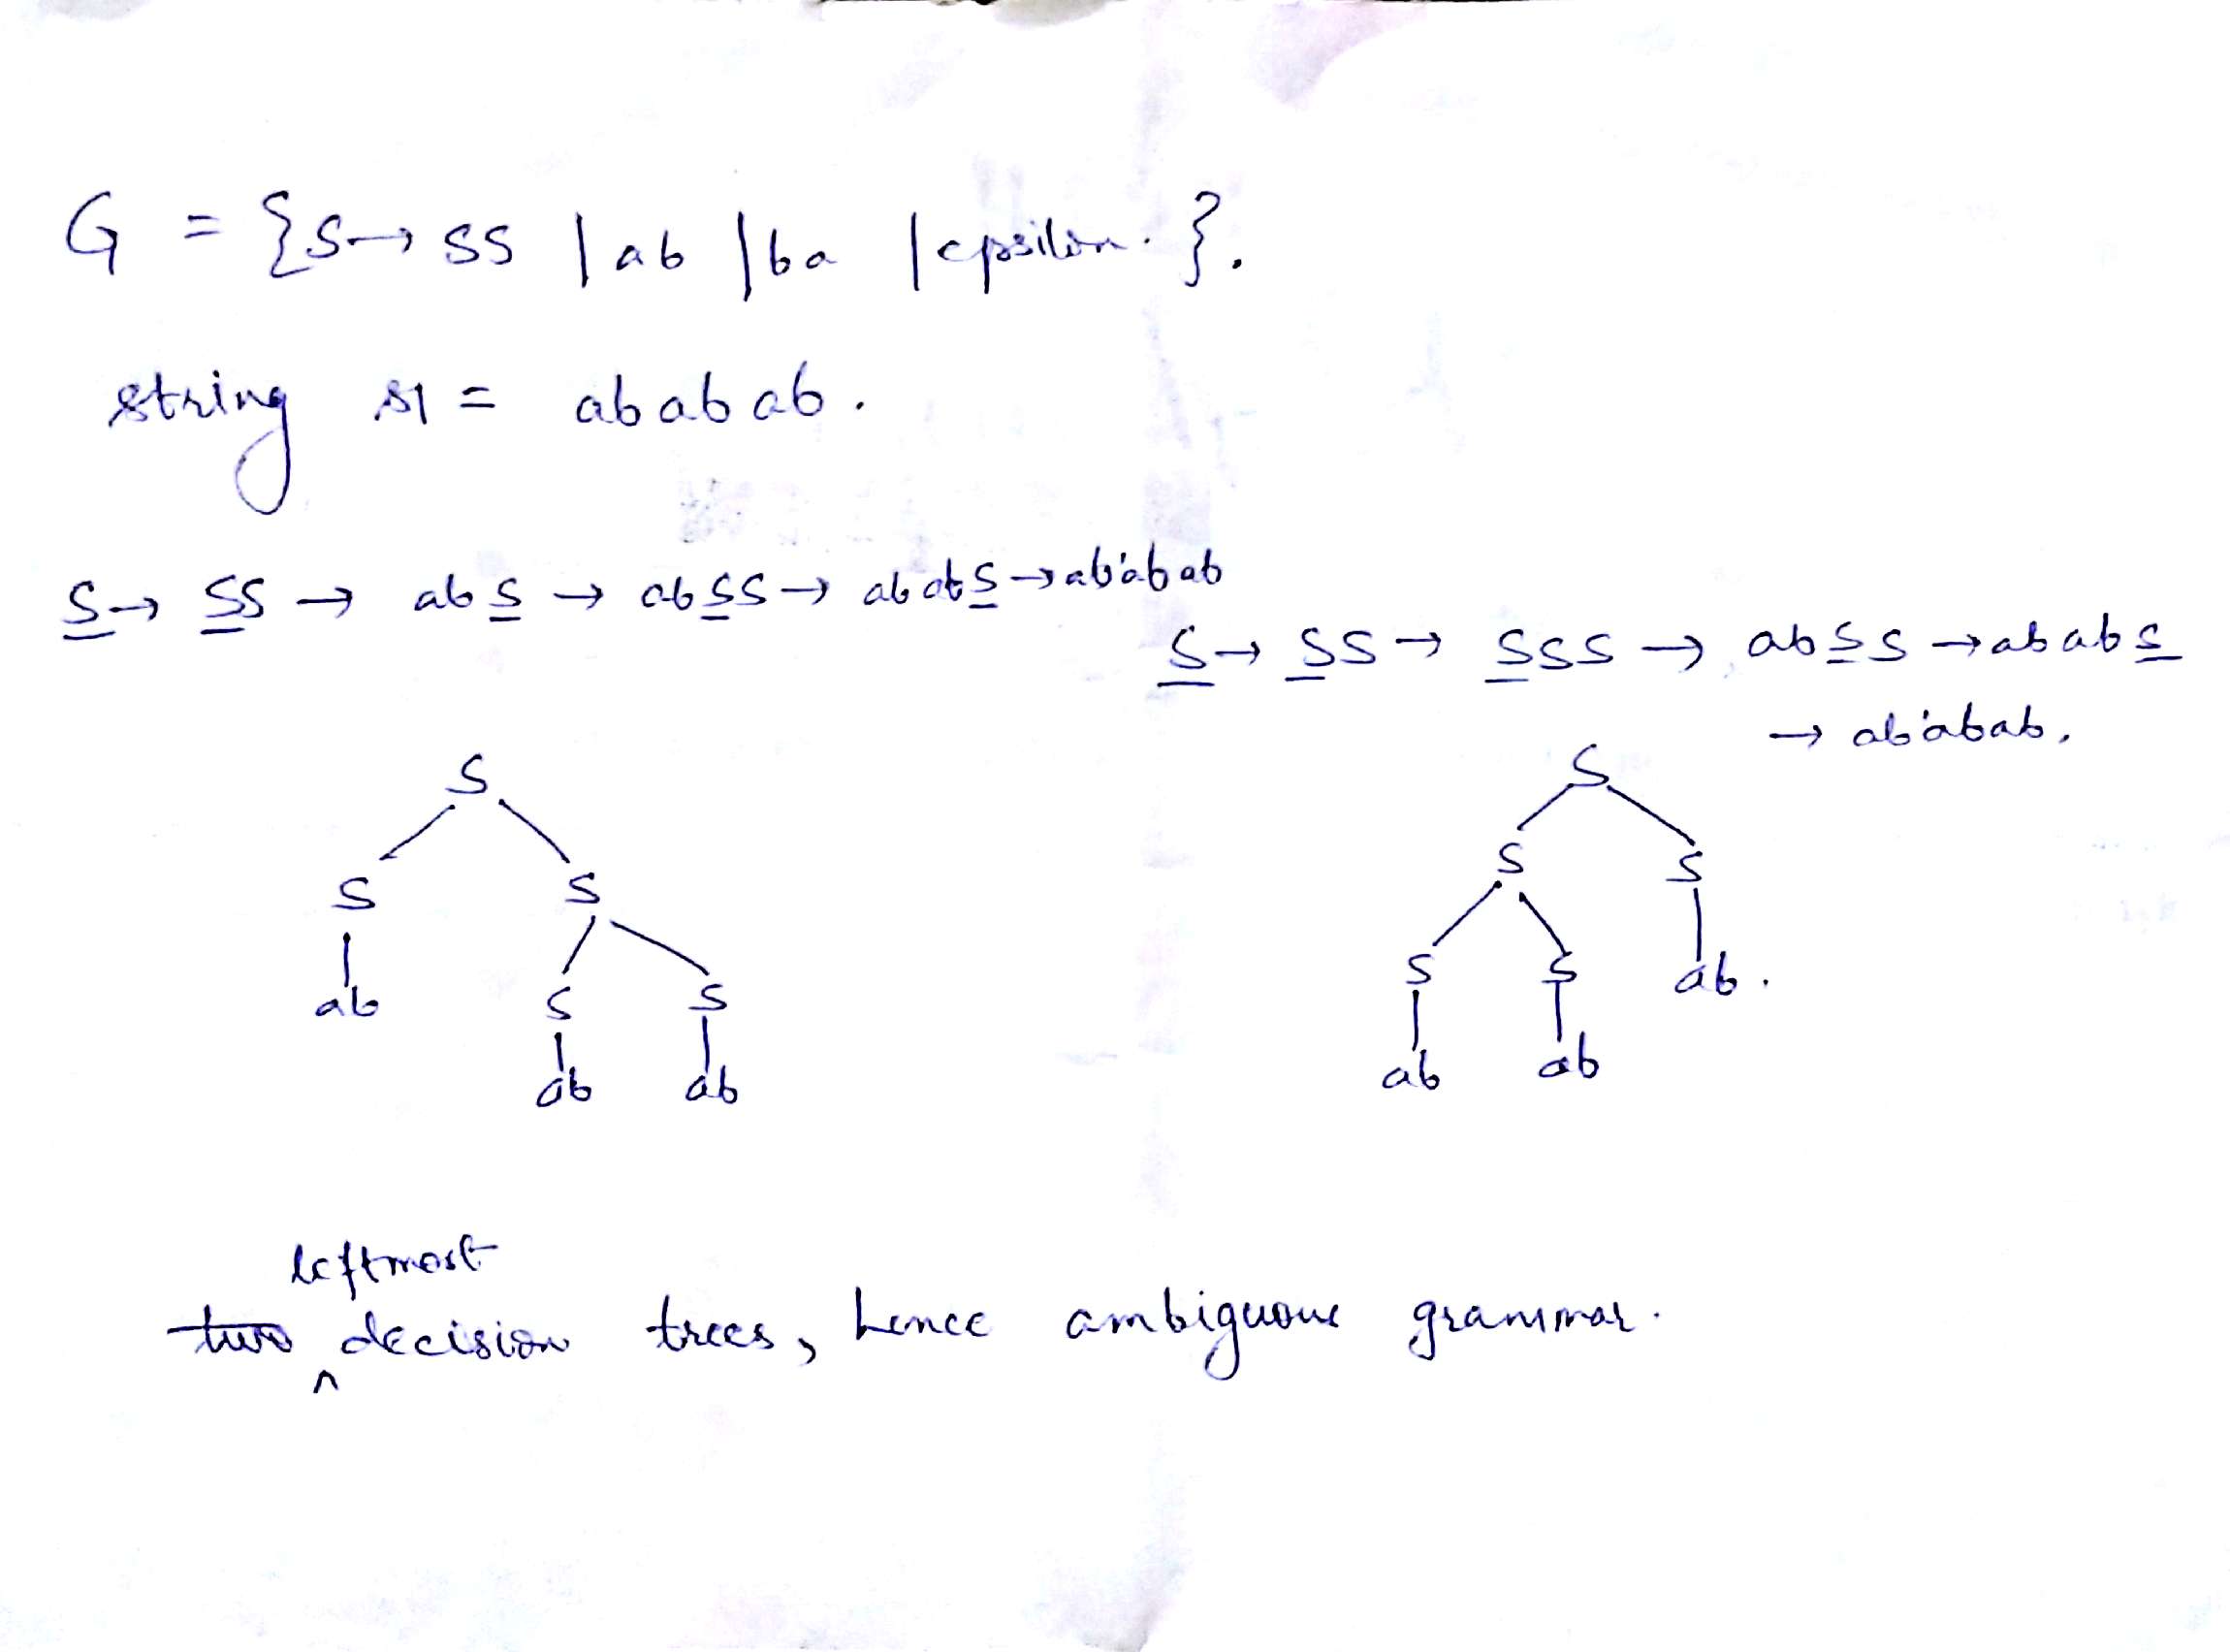 G = {S→ SS | ab | ba | epsilon. }.
string s1 = ababab.
S→ SS → abS → abSS → ababS → ababab
S→ SS → SSS → abSS → ababS
→ ababab.
S
S S
ab S S
ab ab
S
S S
S S ab.
ab ab
leftmost
two decision trees, hence ambiguous grammar.